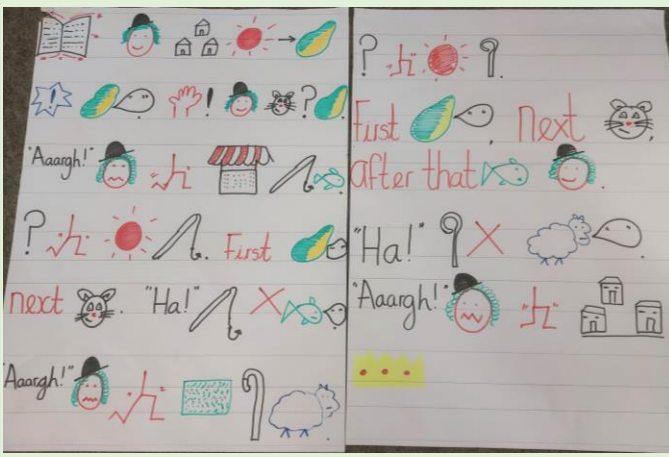 !
! ?
"Aaargh!" .
? . First
next . "Ha!"
"Aaargh!" .
? .
First , next ,
after that .
"Ha!" .
"Aaargh!"